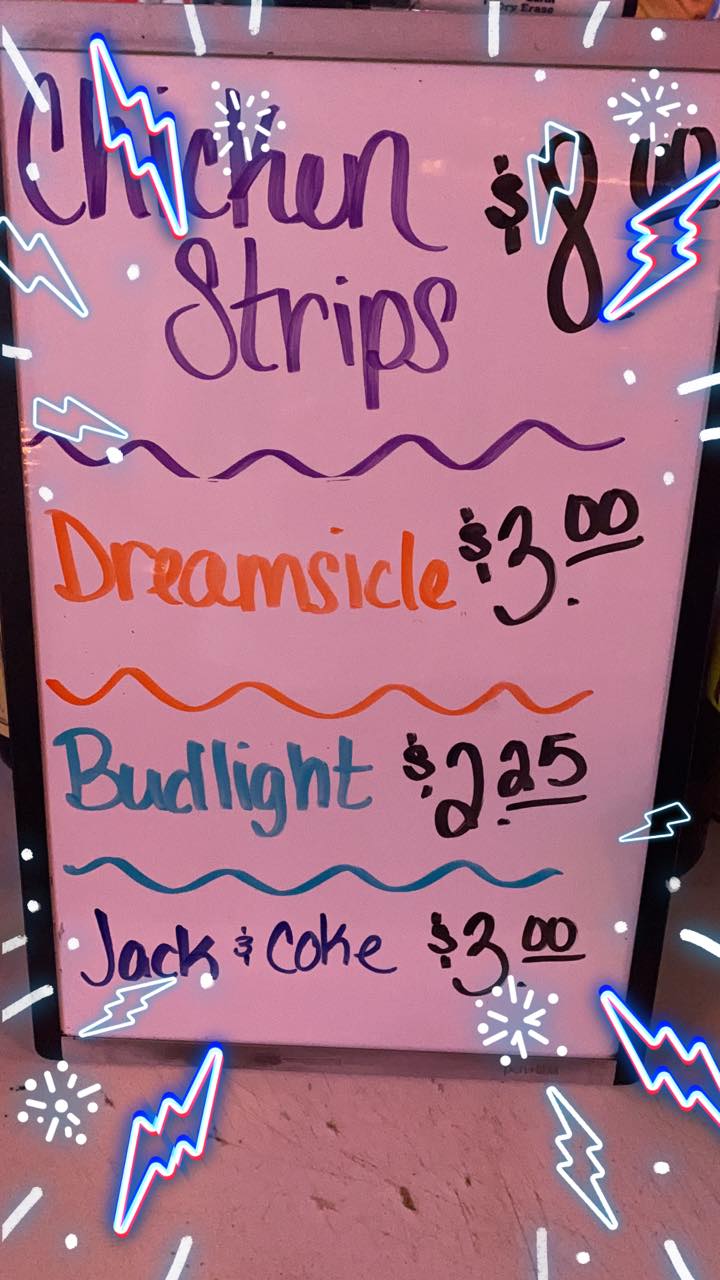 Chicken $8.00
Strips
Dreamsicle $3.00
Budlight $2.25
Jack & Coke $3.00